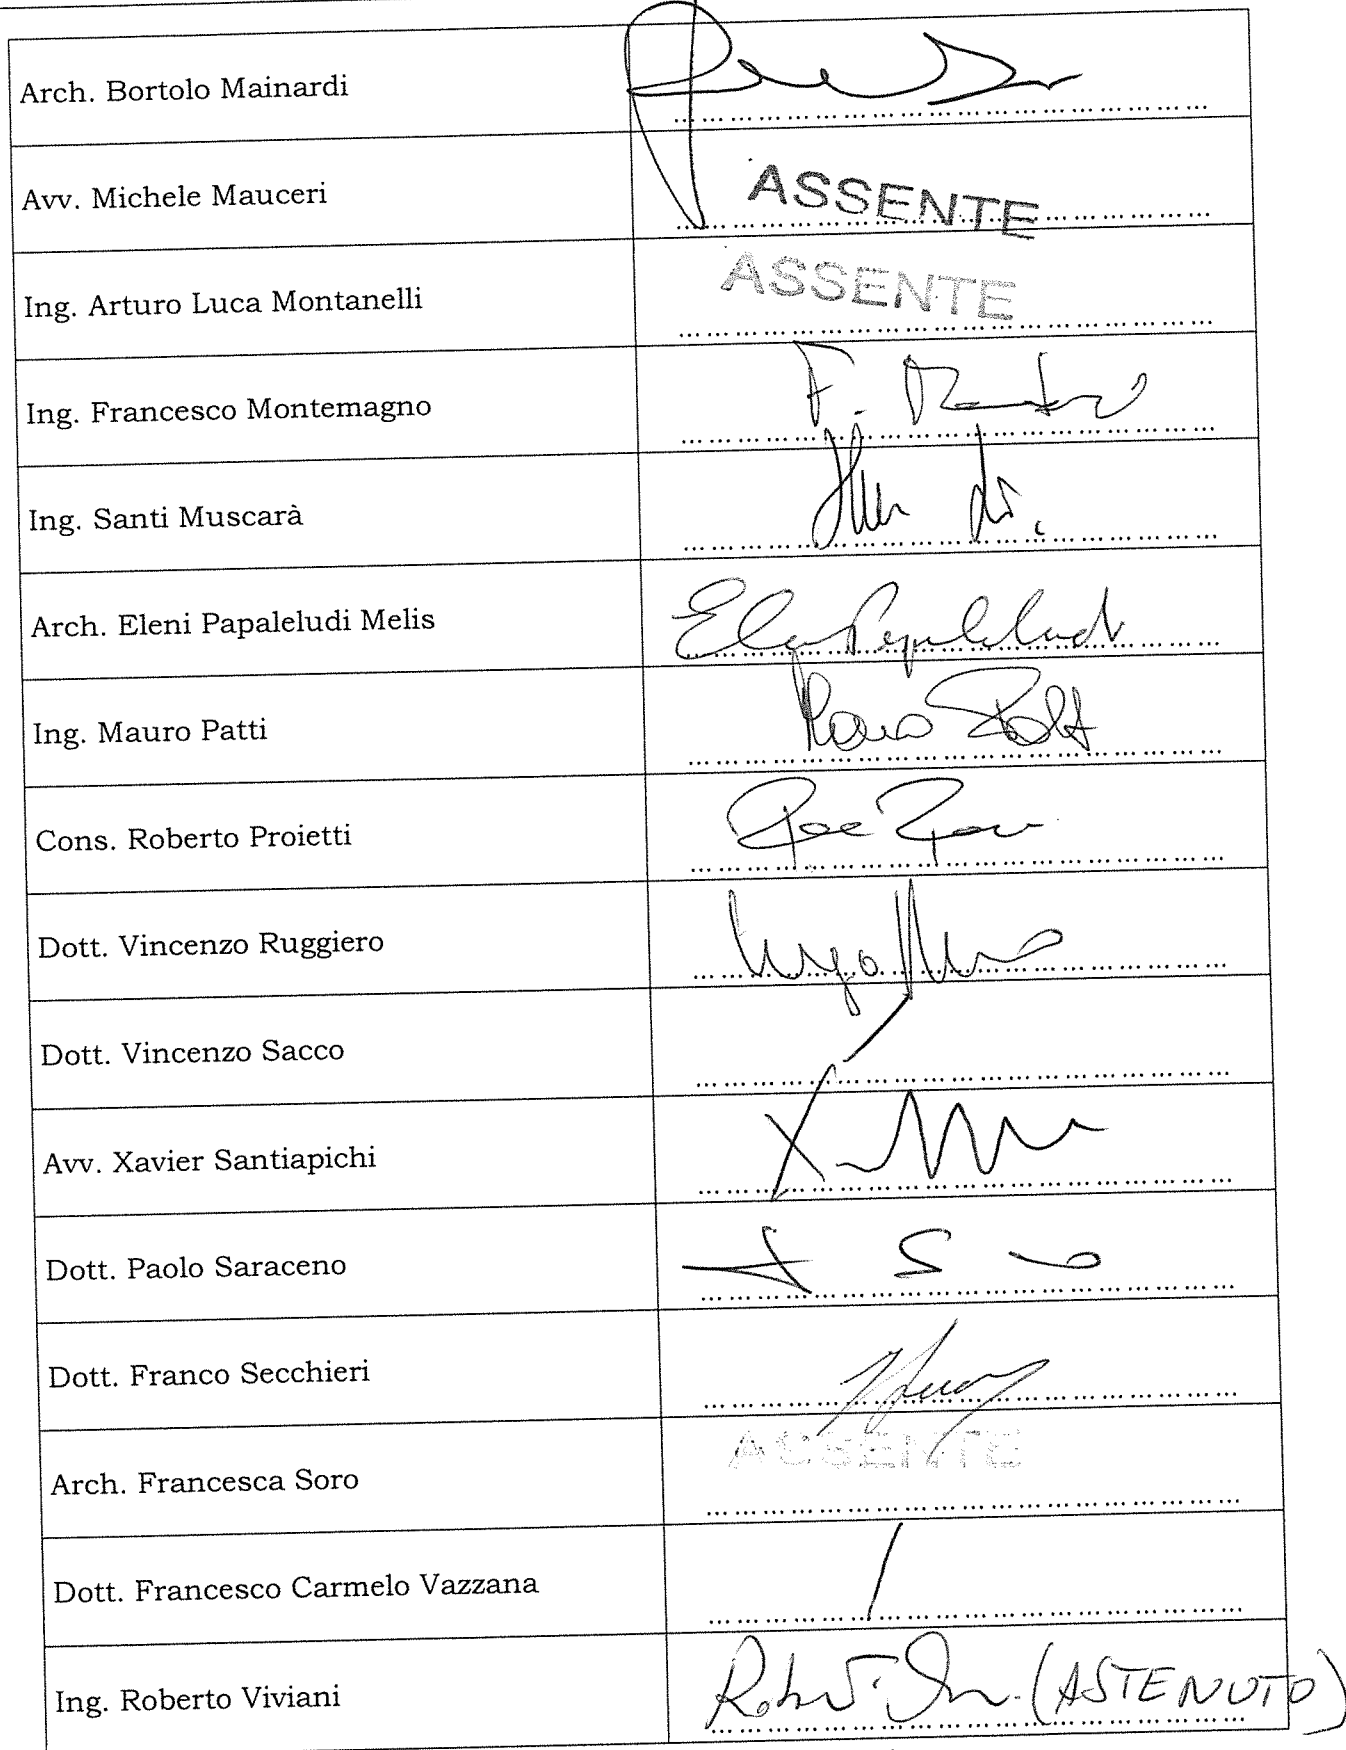 Arch. Bortolo Mainardi
Avv. Michele Mauceri ASSENTE
Ing. Arturo Luca Montanelli ASSENTE
Ing. Francesco Montemagno
Ing. Santi Muscarà
Arch. Eleni Papaleludi Melis
Ing. Mauro Patti
Cons. Roberto Proietti
Dott. Vincenzo Ruggiero
Dott. Vincenzo Sacco
Avv. Xavier Santiapichi
Dott. Paolo Saraceno
Dott. Franco Secchieri
Arch. Francesca Soro ASSENTE
Dott. Francesco Carmelo Vazzana
Ing. Roberto Viviani (ASTENUTO)